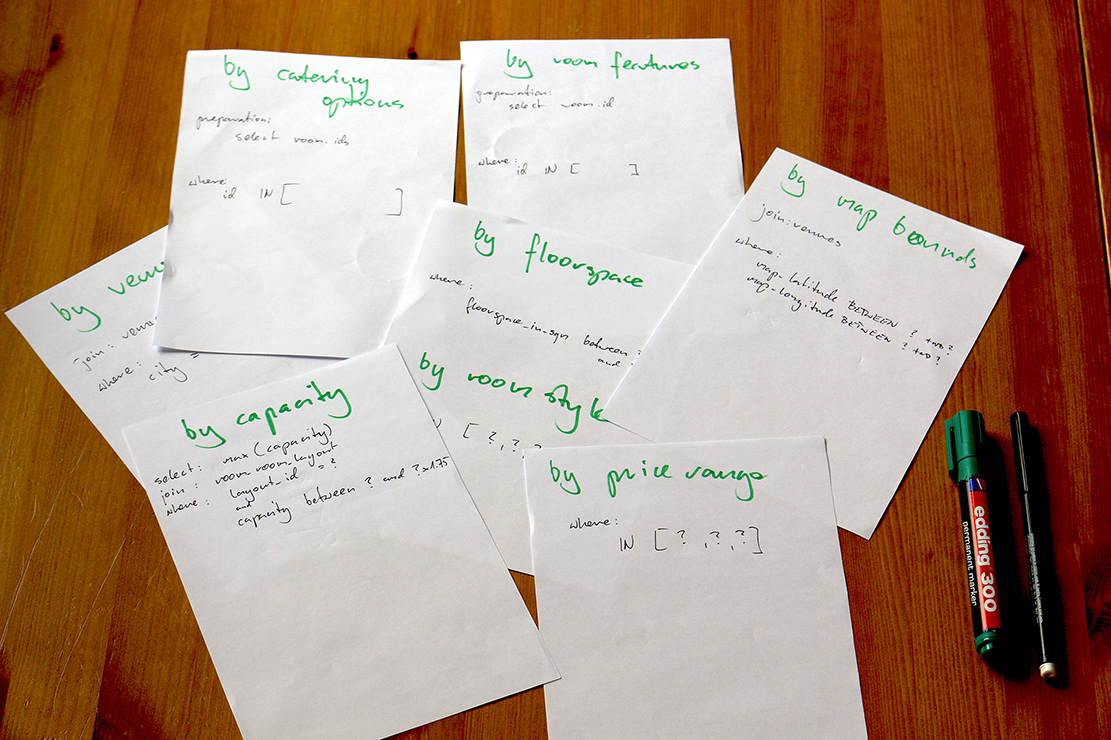 by catering
options
preparation:
select room.ids
where:
id IN [ ]
by room features
preparation:
select room.id
where:
id IN [ ]
by map bounds
join: venues
where:
map_latitude BETWEEN ? AND ?
map_longitude BETWEEN ? AND ?
by venu
join: venu
where:
city =
by floorspace
where:
floorspace_in_sqm between ?
and
by room style
[ ?, ?, ?
by capacity
select: max (capacity)
join: room.room_layout
where: layout_id = ?
and
capacity between ? and ? x 1.75
by price range
where:
IN [ ? , ? , ? ]
edding 300
permanent marker